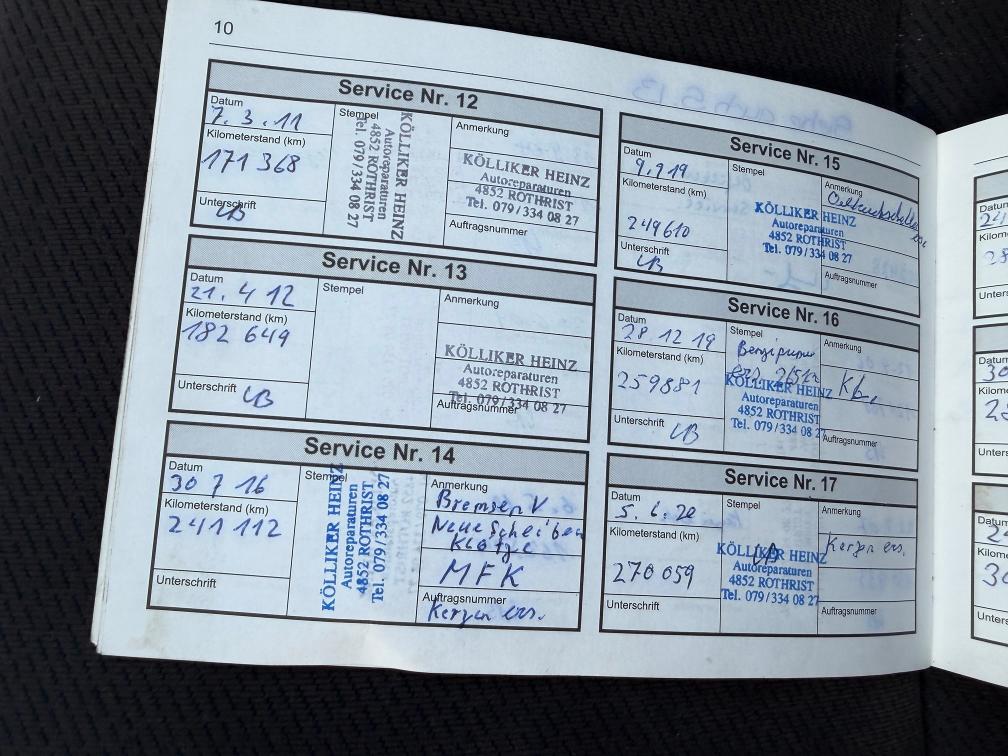 10
Service Nr. 12
Datum
7.3.11
Kilometerstand (km)
171 368
Unterschrift
Stempel
KÖLLIKER HEINZ
Autoreparaturen
4852 ROTHRIST
Tel. 079/334 08 27
Anmerkung
KÖLLIKER HEINZ
Autoreparaturen
4852 ROTHRIST
Tel. 079/334 08 27
Auftragsnummer
Service Nr. 13
Datum
21.4 12
Kilometerstand (km)
182 649
Unterschrift
Stempel
Anmerkung
KÖLLIKER HEINZ
Autoreparaturen
4852 ROTHRIST
Tel. 079/334 08 27
Auftragsnummer
Service Nr. 14
Datum
30 7 16
Kilometerstand (km)
241 112
Unterschrift
Stempel
KÖLLIKER HEINZ
Autoreparaturen
4852 ROTHRIST
Tel. 079/334 08 27
Anmerkung
Bremsen V
Neue Scheiben
Klötze
MFK
Auftragsnummer
Kerzen ers.
Service Nr. 15
Datum
9.9 19
Kilometerstand (km)
249610
Unterschrift
Stempel
KÖLLIKER HEINZ
Autoreparaturen
4852 ROTHRIST
Tel. 079/334 08 27
Anmerkung
Auftragsnummer
Service Nr. 16
Datum
28 12 19
Kilometerstand (km)
259881
Unterschrift
Stempel
KÖLLIKER HEINZ
Autoreparaturen
4852 ROTHRIST
Tel. 079/334 08 27
Anmerkung
Auftragsnummer
Service Nr. 17
Datum
5.6.20
Kilometerstand (km)
270 059
Unterschrift
Stempel
KÖLLIKER HEINZ
Autoreparaturen
4852 ROTHRIST
Tel. 079/334 08 27
Anmerkung
Kerzen ers.
Auftragsnummer
Datum